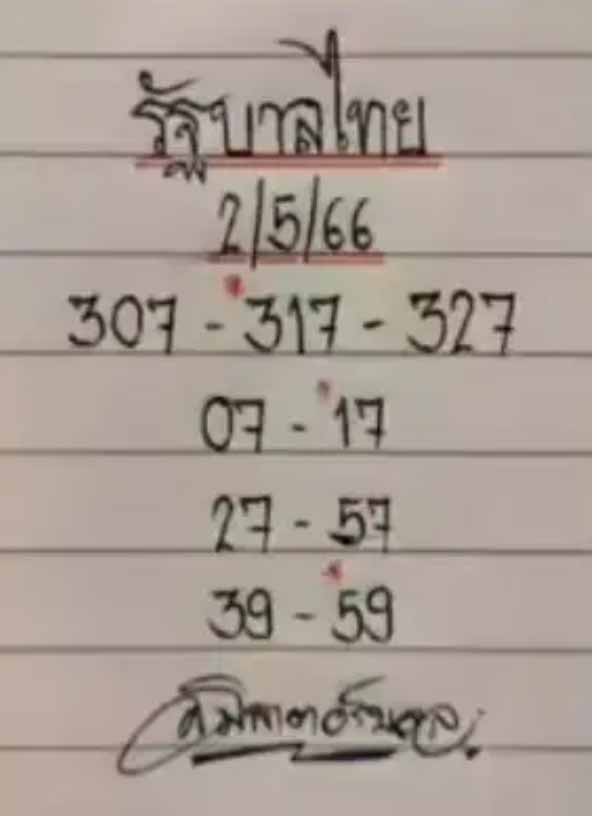 รัฐบาลไทย
2/5/66
307 - *317 - 327
07 - *17
27 - 57
39 - *59